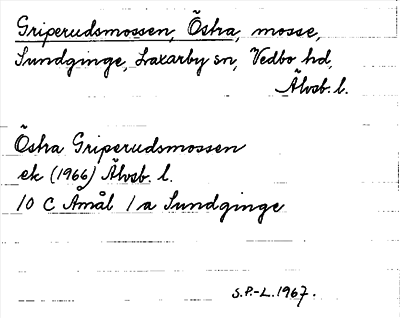 Griperudsmossen, Östra, mosse,
Sundginge, Laxarby sn, Vedbo hd,
Älvsb. l.
Östra Griperudsmossen
ek (1966) Älvsb. l.
10 C Åmål 1 a Sundginge
S.P.-L. 1967.